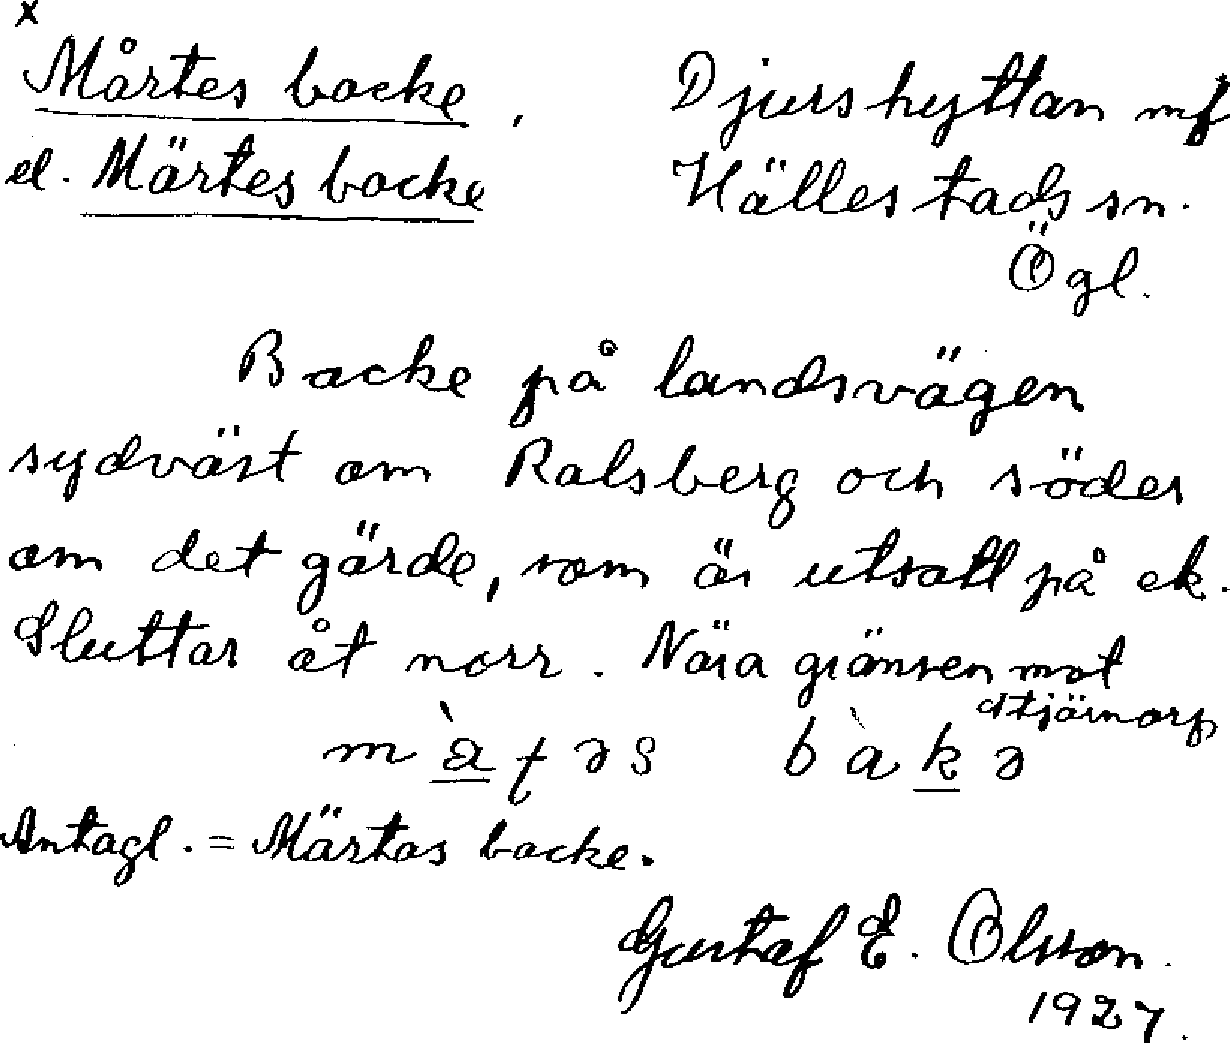 x
Mårtes backe, Djurshyttan mf
el. Märtes backe Hällestads sn.
Ögl.
Backe på landsvägen
sydväst om Ralsberg och söder
om det gärde, som är utsatt på ek.
Sluttar åt norr. Nära gränsen mot
Stjärnorp
bàkə
Antagl. = Märtas backe.
Gustaf E. Olsson.
1927.